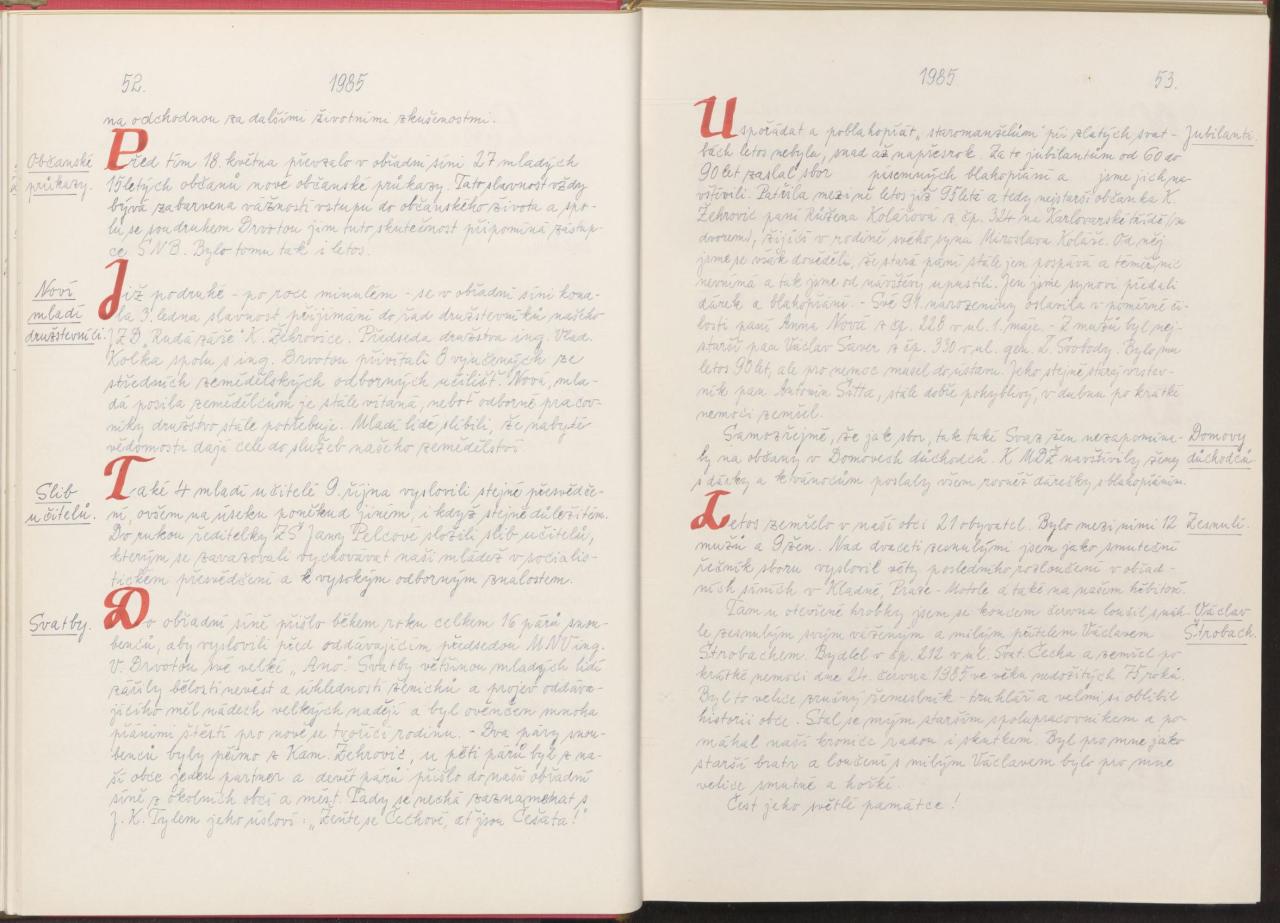 52.
1985
na odchodnou za dalšími životními zkušenostmi.
Občanské
průkazy.
Před tím 18. května převzalo v obřadní síni 27 mladých
15letých občanů nové občanské průkazy. Tato slavnost vždy
bývá zabarvena vážností vstupu do občanského života a spo-
lu se soudruhem Drvotou jim tuto skutečnost připomíná zástup-
ce SNB. Bylo tomu tak i letos.
Noví
mladí
družstevníci.
Již podruhé - po roce minulém - se v obřadní síni kona-
la 3. ledna slavnost přijímání do řad družstevníků našeho
JZD „Rudá záře" K. Žehrovice. Předseda družstva ing. Vlad.
Kolka spolu s ing. Drvotou přivítali 8 vyučených ze
středních zemědělských odborných učilišť. Nová, mla-
dá posila zemědělcům je stále vítaná, neboť odborné pracov-
níky družstvo stále potřebuje. Mladí lidé slíbili, že nabyté
vědomosti dají cele do služeb našeho zemědělství.
Slib
učitelů.
Také 4 mladí učitelé 9. října vyslovili stejné přesvědče-
ní, ovšem na úseku poněkud jiném, i když stejně důležitém.
Do rukou ředitelky ZŠ Jany Pelcové složili slib učitelů,
kterým se zavazovali vychovávat naši mládež v socialis-
tickém přesvědčení a k vysokým odborným znalostem.
Svatby.
Do obřadní síně přišlo během roku celkem 16 párů snou-
benců, aby vyslovili před oddávajícím předsedou MNV ing.
V. Drvotou své velké „Ano." Svatby většinou mladých lidí
zářily bělostí nevěst a úhledností ženichů a projev oddáva-
jícího měl nádech velkých nadějí a byl ověnčen mnoha
přáními štěstí pro nově se tvořící rodinu. - Dva páry snou-
benců byly přímo z Kam. Žehrovic, u pěti párů byl z na-
ší obce jeden partner a devět párů přišlo do naší obřadní
síně z okolních obcí a měst. Tady se nechá zaznamenat s
J. K. Tylem jeho úsloví: „Žeňte se Čechové, ať jsou Češata!"
1985
53.
Jubilanti.
Uspořádat a poblahopřát „staromanželům" při zlatých svat-
bách letos nebylo, snad až napřesrok. Zato jubilantům od 60 do
90 let zaslal sbor písemných blahopřání a jsme jich na-
vštívili. Patřila mezi ně letos již 95letá a tedy nejstarší občanka K.
Žehrovic paní Růžena Kolářová z čp. 324 na Karlovarské třídě (za
dvorem), žijící v rodině svého syna Miroslava Koláře. Od něj
jsme se však dověděli, že stará paní stále jen pospává a téměř nic
nevnímá a tak jsme od návštěvy upustili. Jen jsme synovi předali
dárek a blahopřání. - Své 91. narozeniny oslavila v poměrné či-
losti paní Anna Nová z čp. 228 v ul. 1. máje. - Z mužů byl nej-
starší pan Václav Saver z čp. 330 v ul. gen. L. Svobody. Bylo mu
letos 90 let, ale pro nemoc musel do ústavu. Jeho stejně starý vrstev-
ník pan Antonín Sitta, stále dobře pohyblivý, v dubnu po krátké
nemoci zemřel.
Domovy
důchodců
Samozřejmě, že jak sbor, tak také Svaz žen nezapomína-
ly na občany v Domovech důchodců. K MDŽ navštívily ženy
s dárky a k vánočům poslaly všem rovněž dárečky s blahopřáním.
Zesnulí.
Letos zemřelo v naší obci 21 obyvatel. Bylo mezi nimi 12
mužů a 9 žen. Nad dvaceti zesnulými jsem jako smuteční
řečník sboru vyslovil věty posledního rozloučení v obřad-
ních síních v Kladně, Praze - Motole a také na našem hřbitově.
Václav
Štrobach.
Tam u otevřené hrobky jsem se koncem června loučil s náh-
le zesnulým svým váženým a milým přítelem Václavem
Štrobachem. Bydlel v čp. 212 v ul. Svat. Čecha a zemřel po
krátké nemoci dne 24. června 1985 ve věku nedožitých 75 roků.
Byl to velice zručný řemeslník - truhlář a velmi si oblíbil
historii obce. Stal se mým starším spolupracovníkem a po-
máhal naší kronice radou i skutkem. Byl pro mne jako
starší bratr a loučení s milým Václavem bylo pro mne
velice smutné a hořké.
Čest jeho světlé památce!